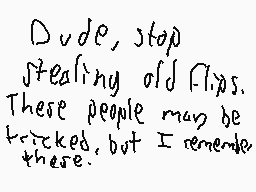 Dude, stop
stealing old flips.
These people may be
tricked, but I remember
these.